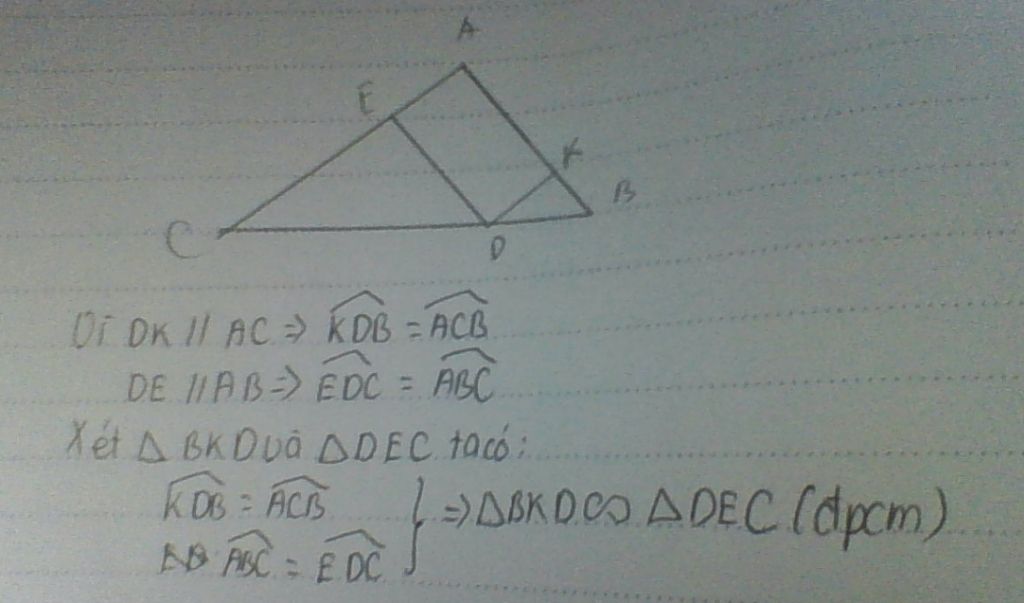 A
E
K
B
C
D
Vì DK // AC => KDB = ACB
DE // AB => EDC = ABC
Xét Δ BKD và Δ DEC ta có:
KDB = ACB
ABC = EDC } => ΔBKD ∽ ΔDEC (đpcm)